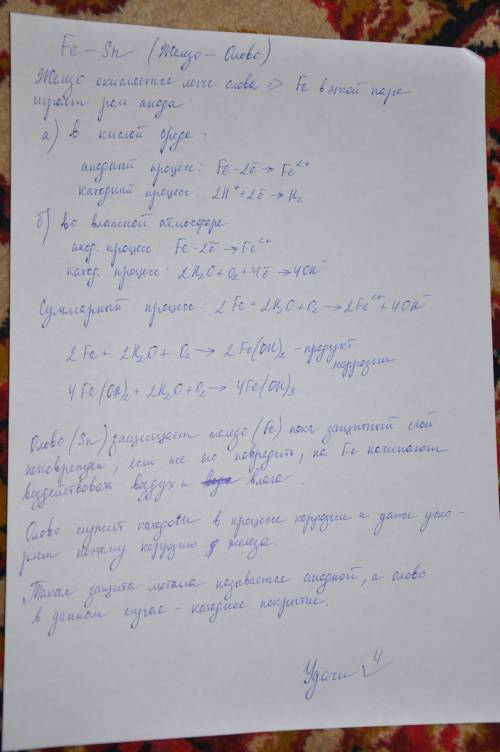 Fe – Sn (Железо – Олово)
Железо окисляется легче олова => Fe в этой паре
играет роль анода
а) в кислой среде :
анодный процесс: Fe - 2ē → Fe²⁺
катодный процесс: 2H⁺ + 2ē → H₂
б) во влажной атмосфере
анод. процесс: Fe - 2ē → Fe²⁺
катод. процесс: 2H₂O + O₂ + 4ē → 4OH⁻
Суммарный процесс: 2Fe + 2H₂O + O₂ → 2Fe²⁺ + 4OH⁻
2Fe + 2H₂O + O₂ → 2Fe(OH)₂ – продукт
коррозии
4Fe(OH)₂ + 2H₂O + O₂ → 4Fe(OH)₃
Олово (Sn) защищает железо (Fe) пока защитный слой
неповрежден, если же его повредить, на Fe начинают
воздействовать воздух и влага
Олово служит катодом в процессе корузии и даже уско-
ряет потому корузию железа.
Такая защита метала называется анодной, а олово
в данном случае – катодное покрытие.
Удачи